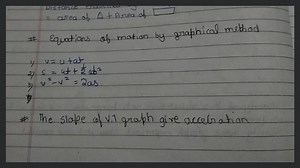 distance
= area of Δ + Area of
* Equations of motion by graphical method
1) v = u + at
2) s = ut + ½ at²
3) v² - v² = 2as
* The slope of V.T graph give accelration